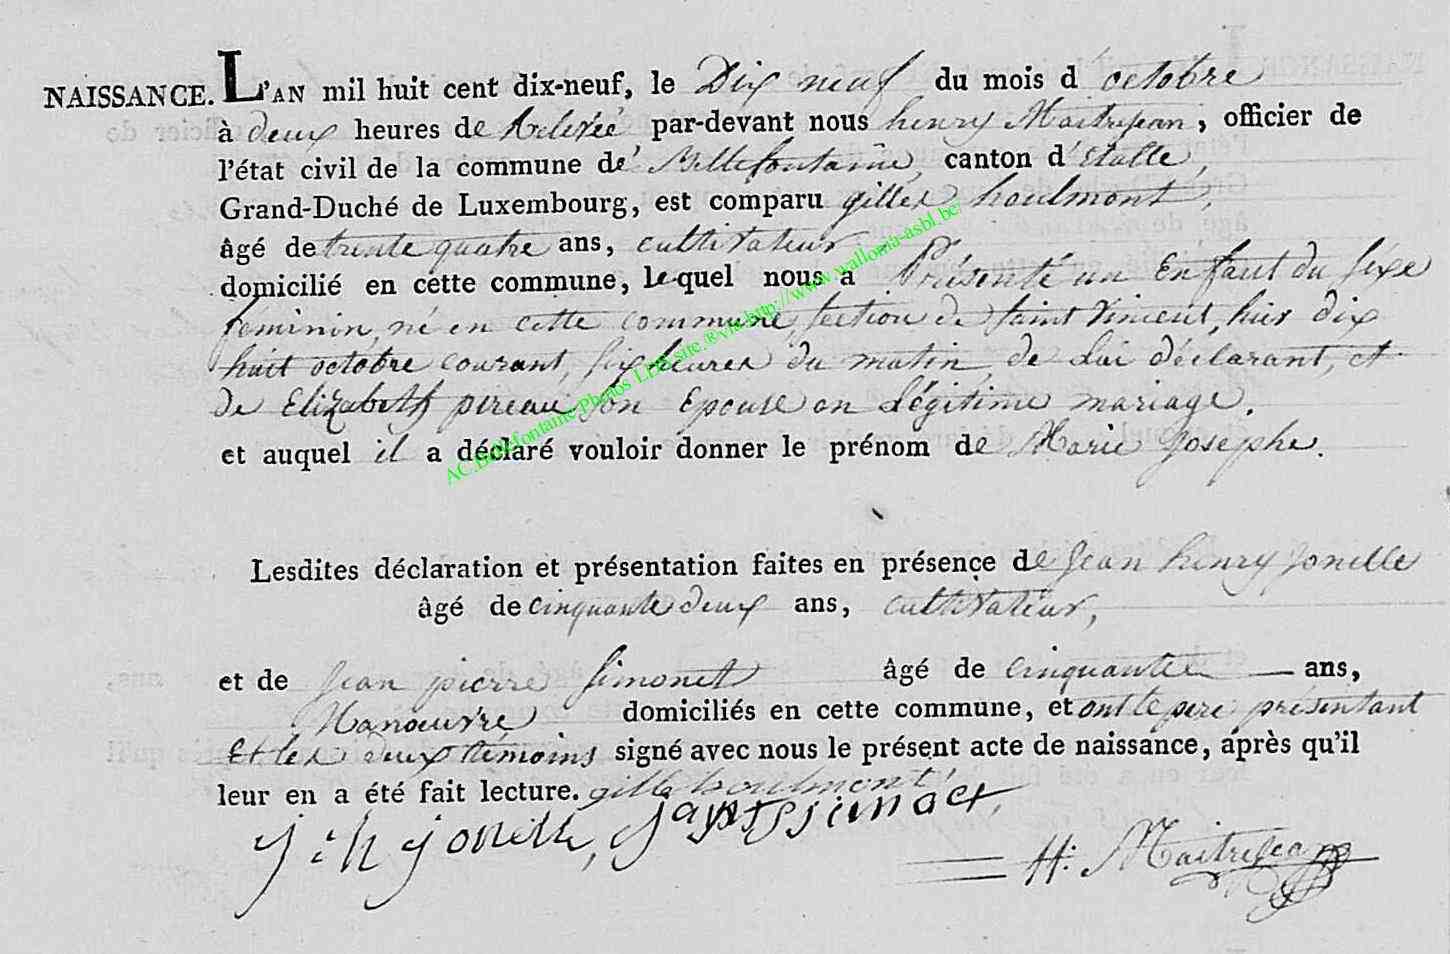 NAISSANCE. L'AN mil huit cent dix-neuf, le Dix neuf du mois d octobre
à deux heures de Relevée par-devant nous henry Maitrejean, officier de
l'état civil de la commune de Bellefontaine, canton d'Etalle,
Grand-Duché de Luxembourg, est comparu gilles houlmont,
âgé de trente quatre ans, cultivateur
domicilié en cette commune, lequel nous a Présenté un Enfant du sexe
feminin, né en cette commune, section de saint Vincent, hier dix
huit octobre courant, six heures du matin, de Lui déclarant, et
de Elizabeth pireau son Epouse en Légitime mariage.
et auquel il a déclaré vouloir donner le prénom de Marie Josephe.
AC.Bellefontaine-Photos LDS site.®via http://www.wallonia-asbl.be/
Lesdites déclaration et présentation faites en présence de Jean henry Jonelle
âgé de cinquante deux ans, cultivateur,
et de Jean pierre Simonet âgé de cinquante — ans,
Manœuvre domiciliés en cette commune, et ont le pere présentant
Et les deux temoins signé avec nous le présent acte de naissance, après qu'il
leur en a été fait lecture. gille houlmont
j : h jonelle,
H. Maitrejean